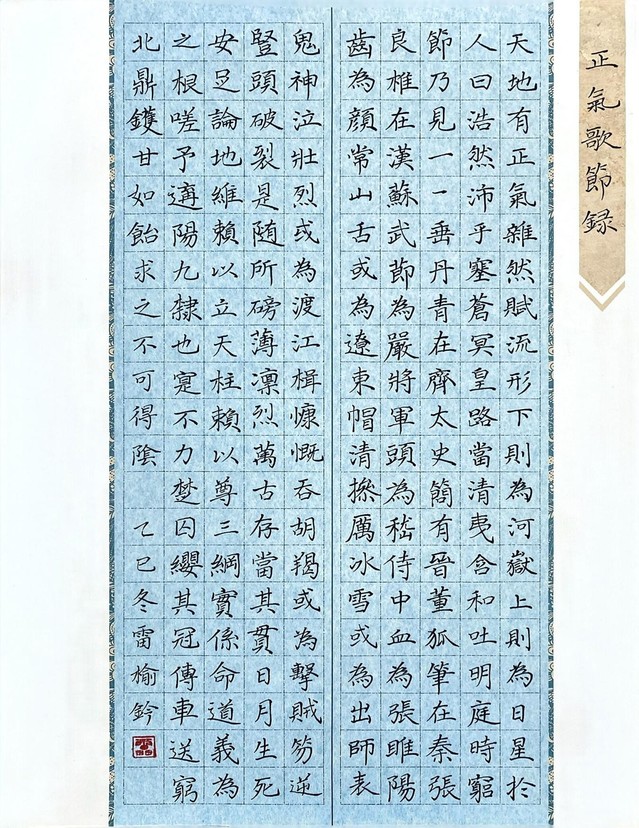 正氣歌節録
天地有正氣雜然賦流形下則為河嶽上則為日星扵
人曰浩然沛乎塞蒼冥皇路當清夷含和吐明庭時窮
節乃見一一垂丹青在齊太史簡有晉董狐筆在秦張
良椎在漢蘇武節為嚴將軍頭為嵇侍中血為張睢陽
齒為顏常山舌或為遼東帽清摻厲冰雪或為出師表
鬼神泣壯烈或為渡江楫慷慨吞胡羯或為擊賊笏逆
豎頭破裂是随所磅薄凛烈萬古存當其貫日月生死
安足論地維賴以立天柱賴以尊三綱實係命道義為
之根嗟予遘陽九隸也寔不力楚囚纓其冠傳車送窮
北鼎鑊甘如飴求之不可得陰 乙巳冬雷榆鈐